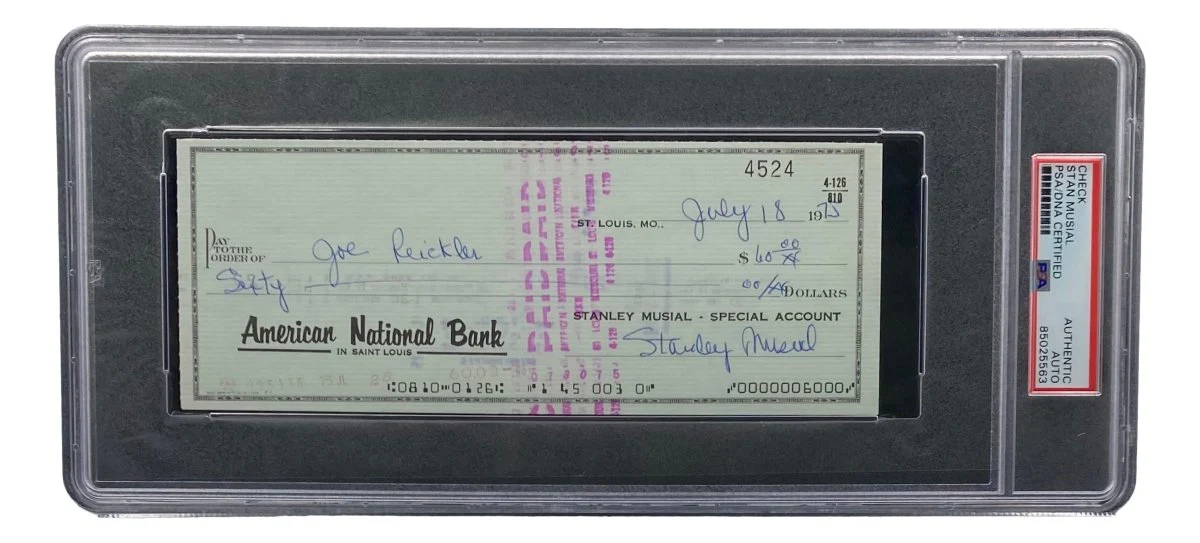 4524
4-126
810
ST. LOUIS, MO., July 18 1975
PAY
TO THE
ORDER OF Joe Reichler $ 60 00/XX
Sixty 00/XX DOLLARS
STANLEY MUSIAL - SPECIAL ACCOUNT
American National Bank
IN SAINT LOUIS
Stanley Musial
⑆0810⑉0126⑆ ⑈145 003 0⑈ ⑈0000006000⑈
PAID PAID
CHECK
STAN MUSIAL
PSA/DNA CERTIFIED
PSA
AUTHENTIC
AUTO
85025563